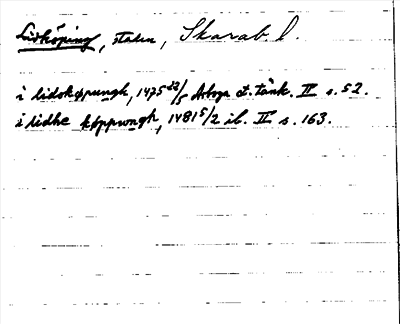 Lidköping, staden, Skarab. l.
i lidokøpungh, 1475 22/5 Arboga st. tänk. II s. 52.
i lidhe køppungh, 1481 5/2 ib. II s. 163.